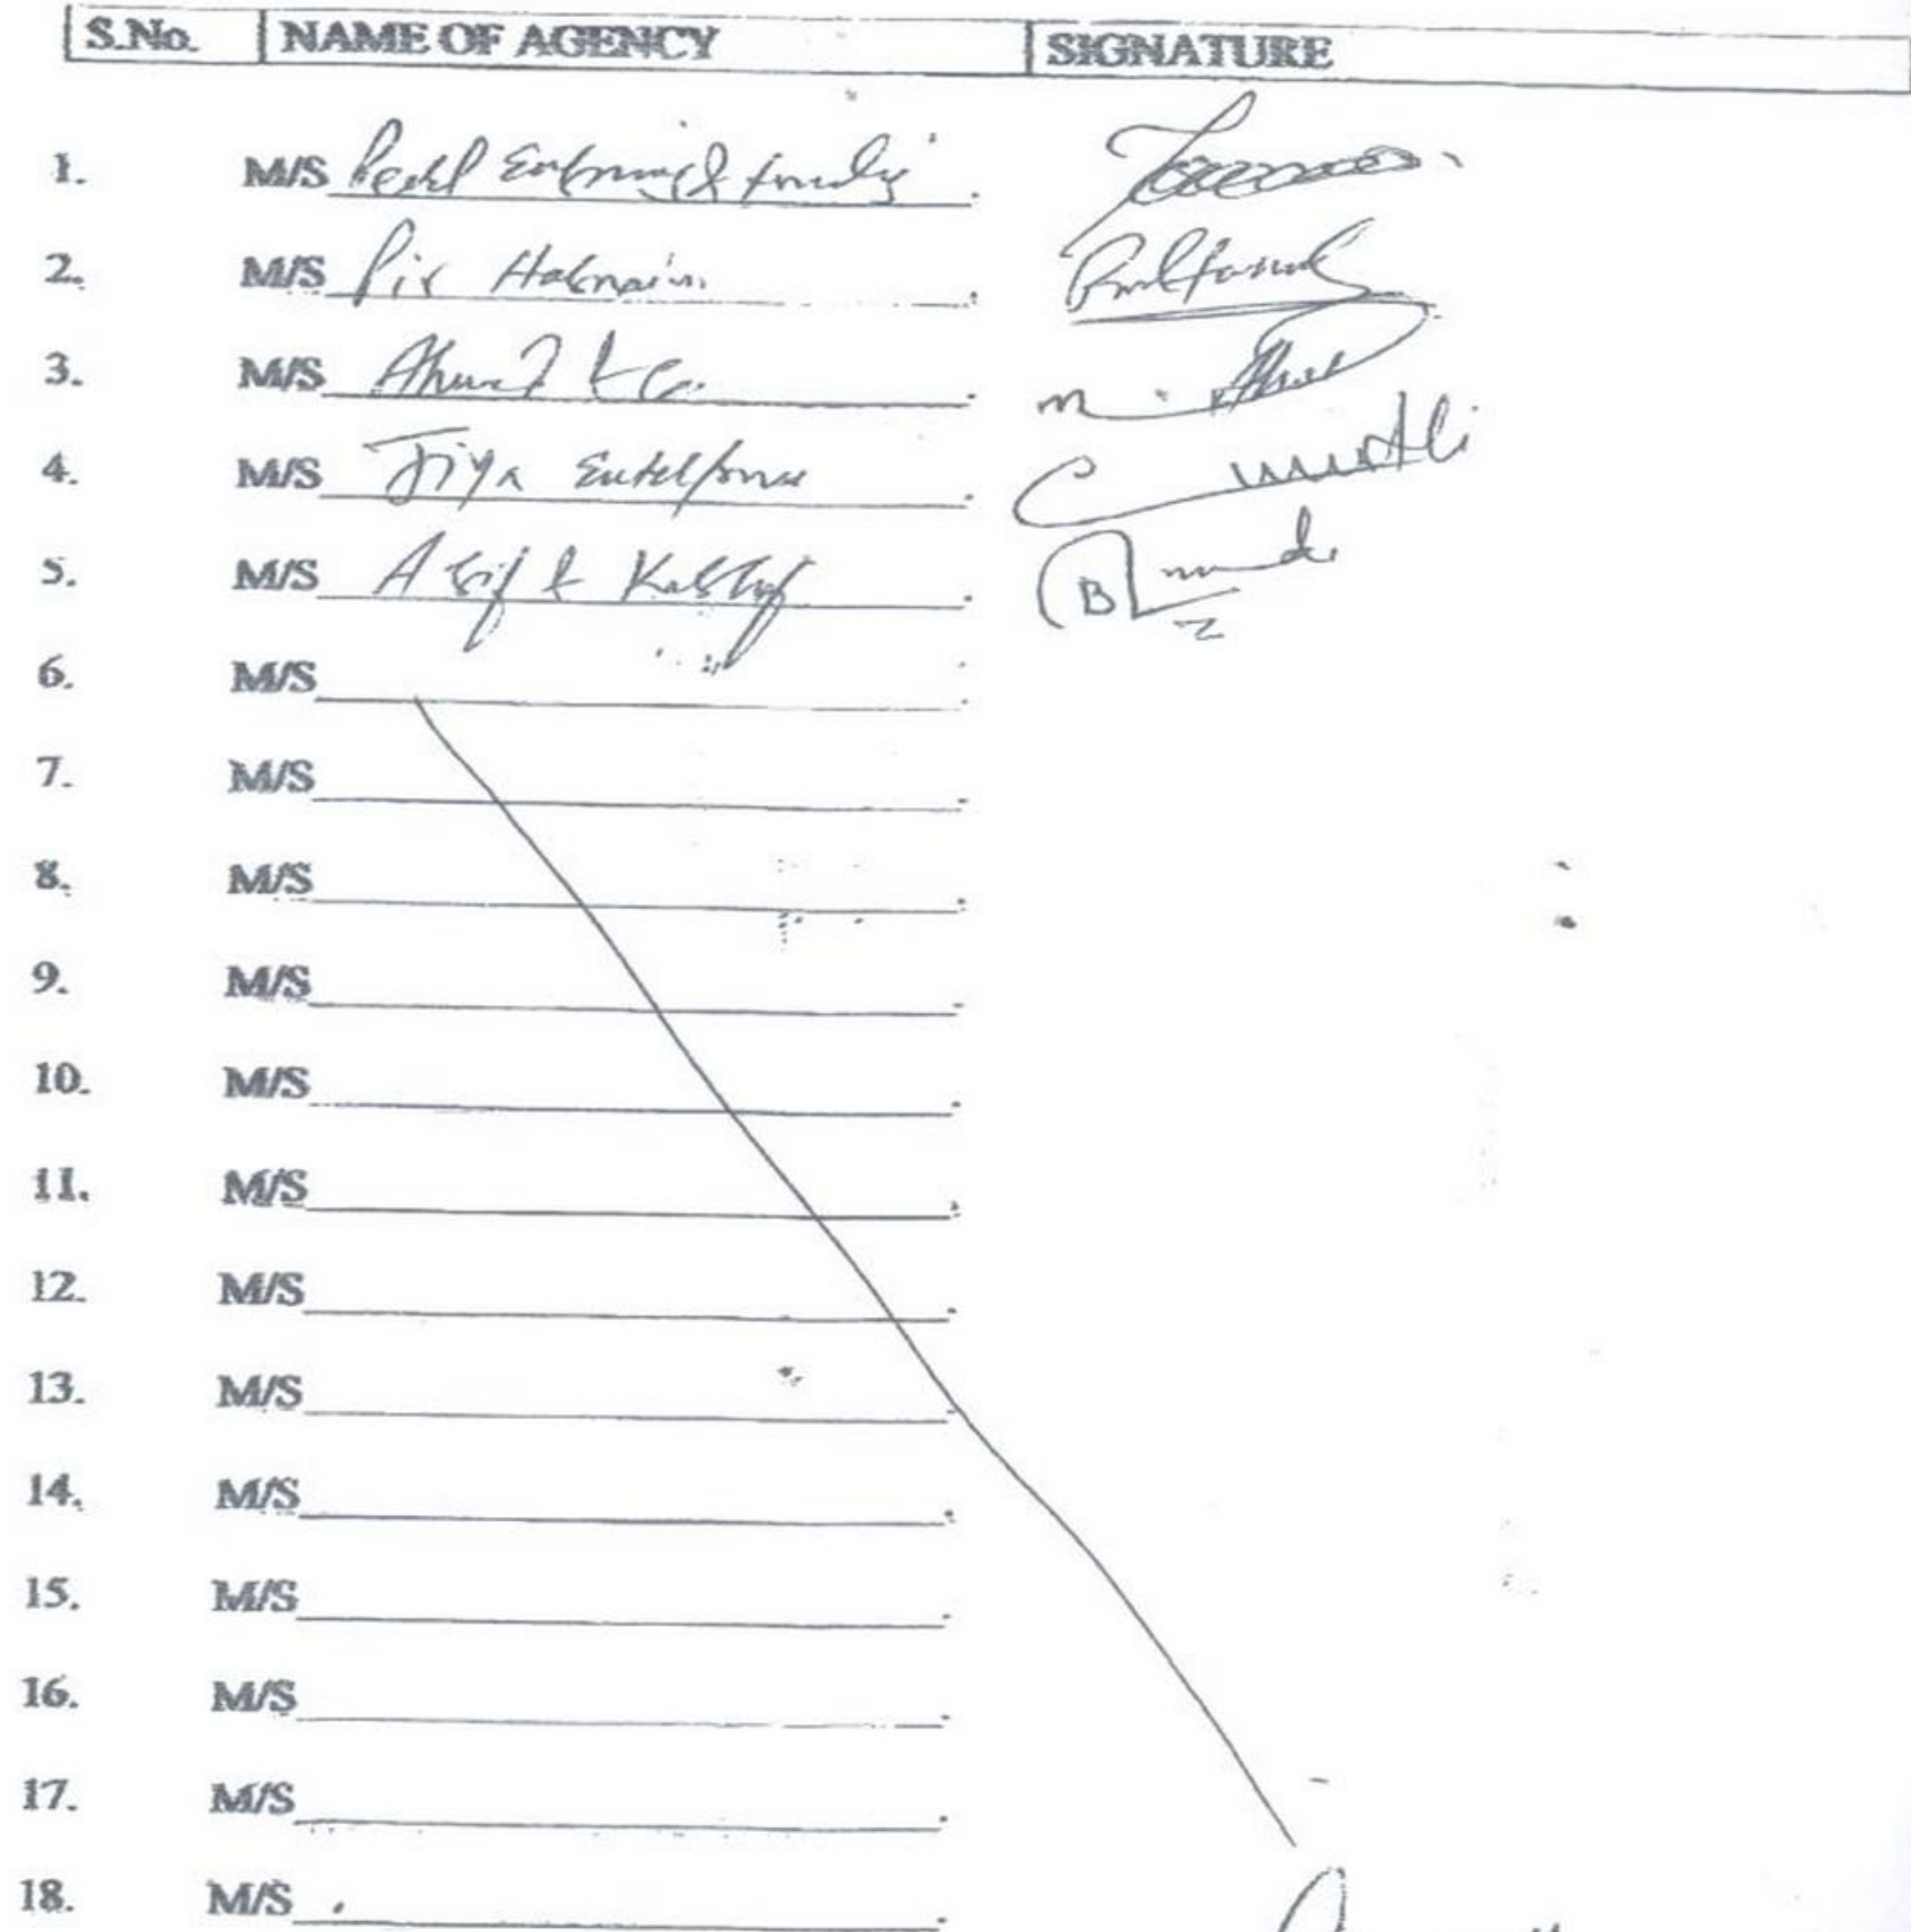 S.No. NAME OF AGENCY SIGNATURE
1. M/S
2. M/S Pir Hasnain.
3. M/S Ahmed & Co.
4. M/S Jiya Enterprises
5. M/S Asif & Kashif
6. M/S
7. M/S
8. M/S
9. M/S
10. M/S
11. M/S
12. M/S
13. M/S
14. M/S
15. M/S
16. M/S
17. M/S
18. M/S